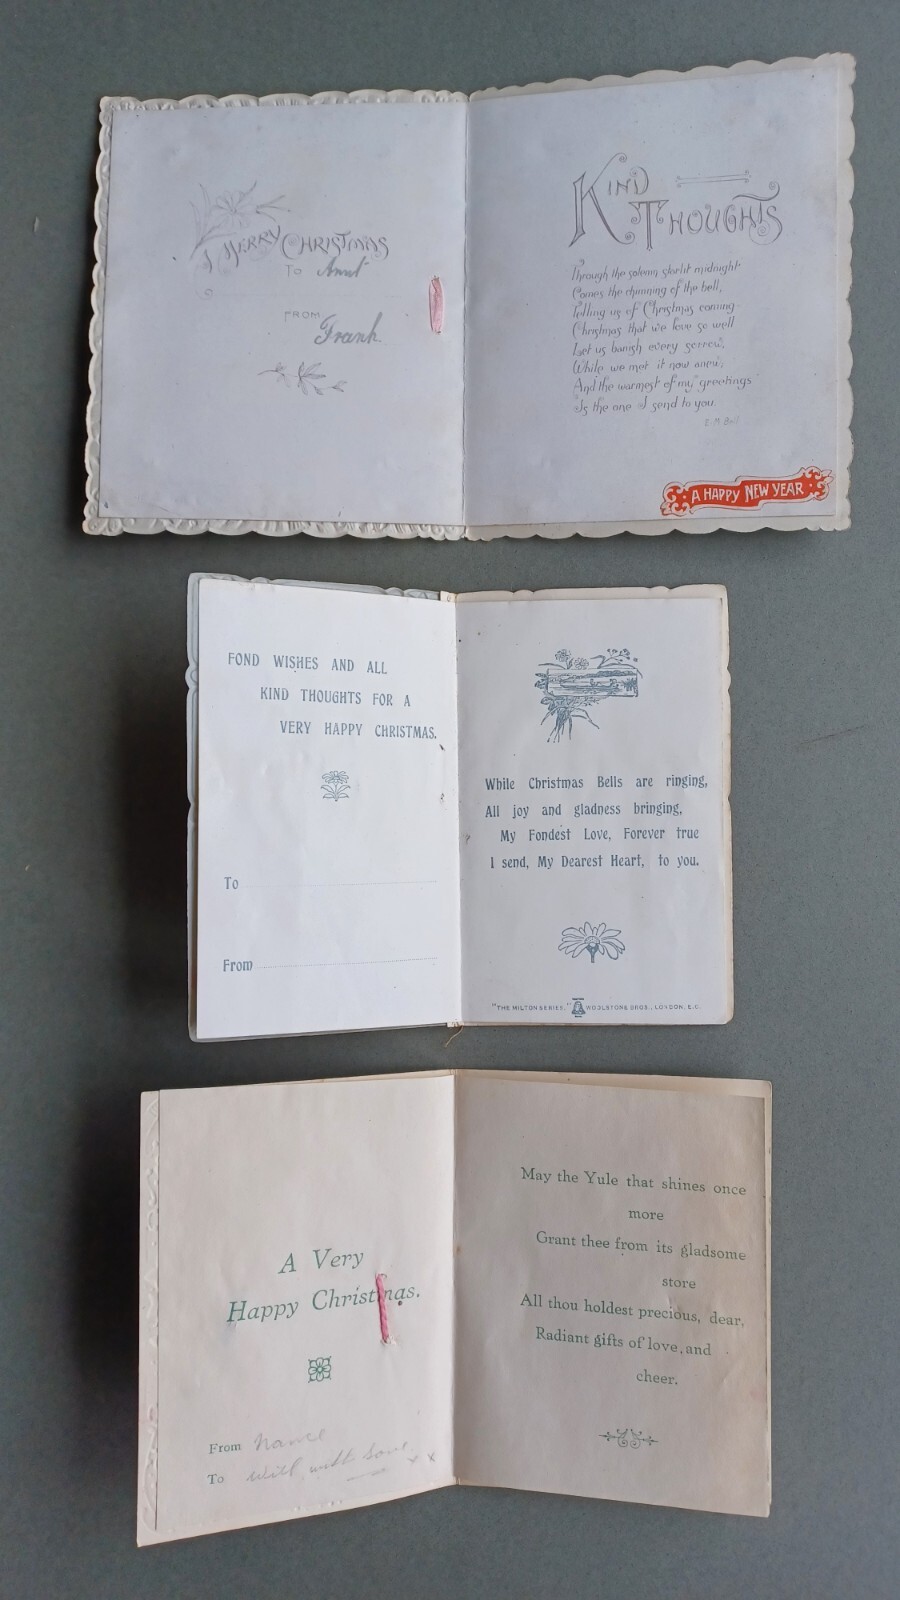 A MERRY CHRISTMAS
TO Aunt
FROM Frank.
KIND
THOUGHTS
Through the solemn starlit midnight
Comes the chiming of the bell,
Telling us of Christmas coming
Christmas that we love so well
Let us banish every sorrow,
While we met it now anew,
And the warmest of my greetings
Is the one I send to you.
E.M. Bell
A HAPPY NEW YEAR
FOND WISHES AND ALL
KIND THOUGHTS FOR A
VERY HAPPY CHRISTMAS.
To
From
While Christmas Bells are ringing,
All joy and gladness bringing,
My Fondest Love, Forever true
I send, My Dearest Heart, to you.
"THE MILTON SERIES." WOOLSTONE BROS., LONDON, E.C.
A Very
Happy Christmas.
From
To Will, with love x x
May the Yule that shines once
more
Grant thee from its gladsome
store
All thou holdest precious, dear,
Radiant gifts of love, and
cheer.